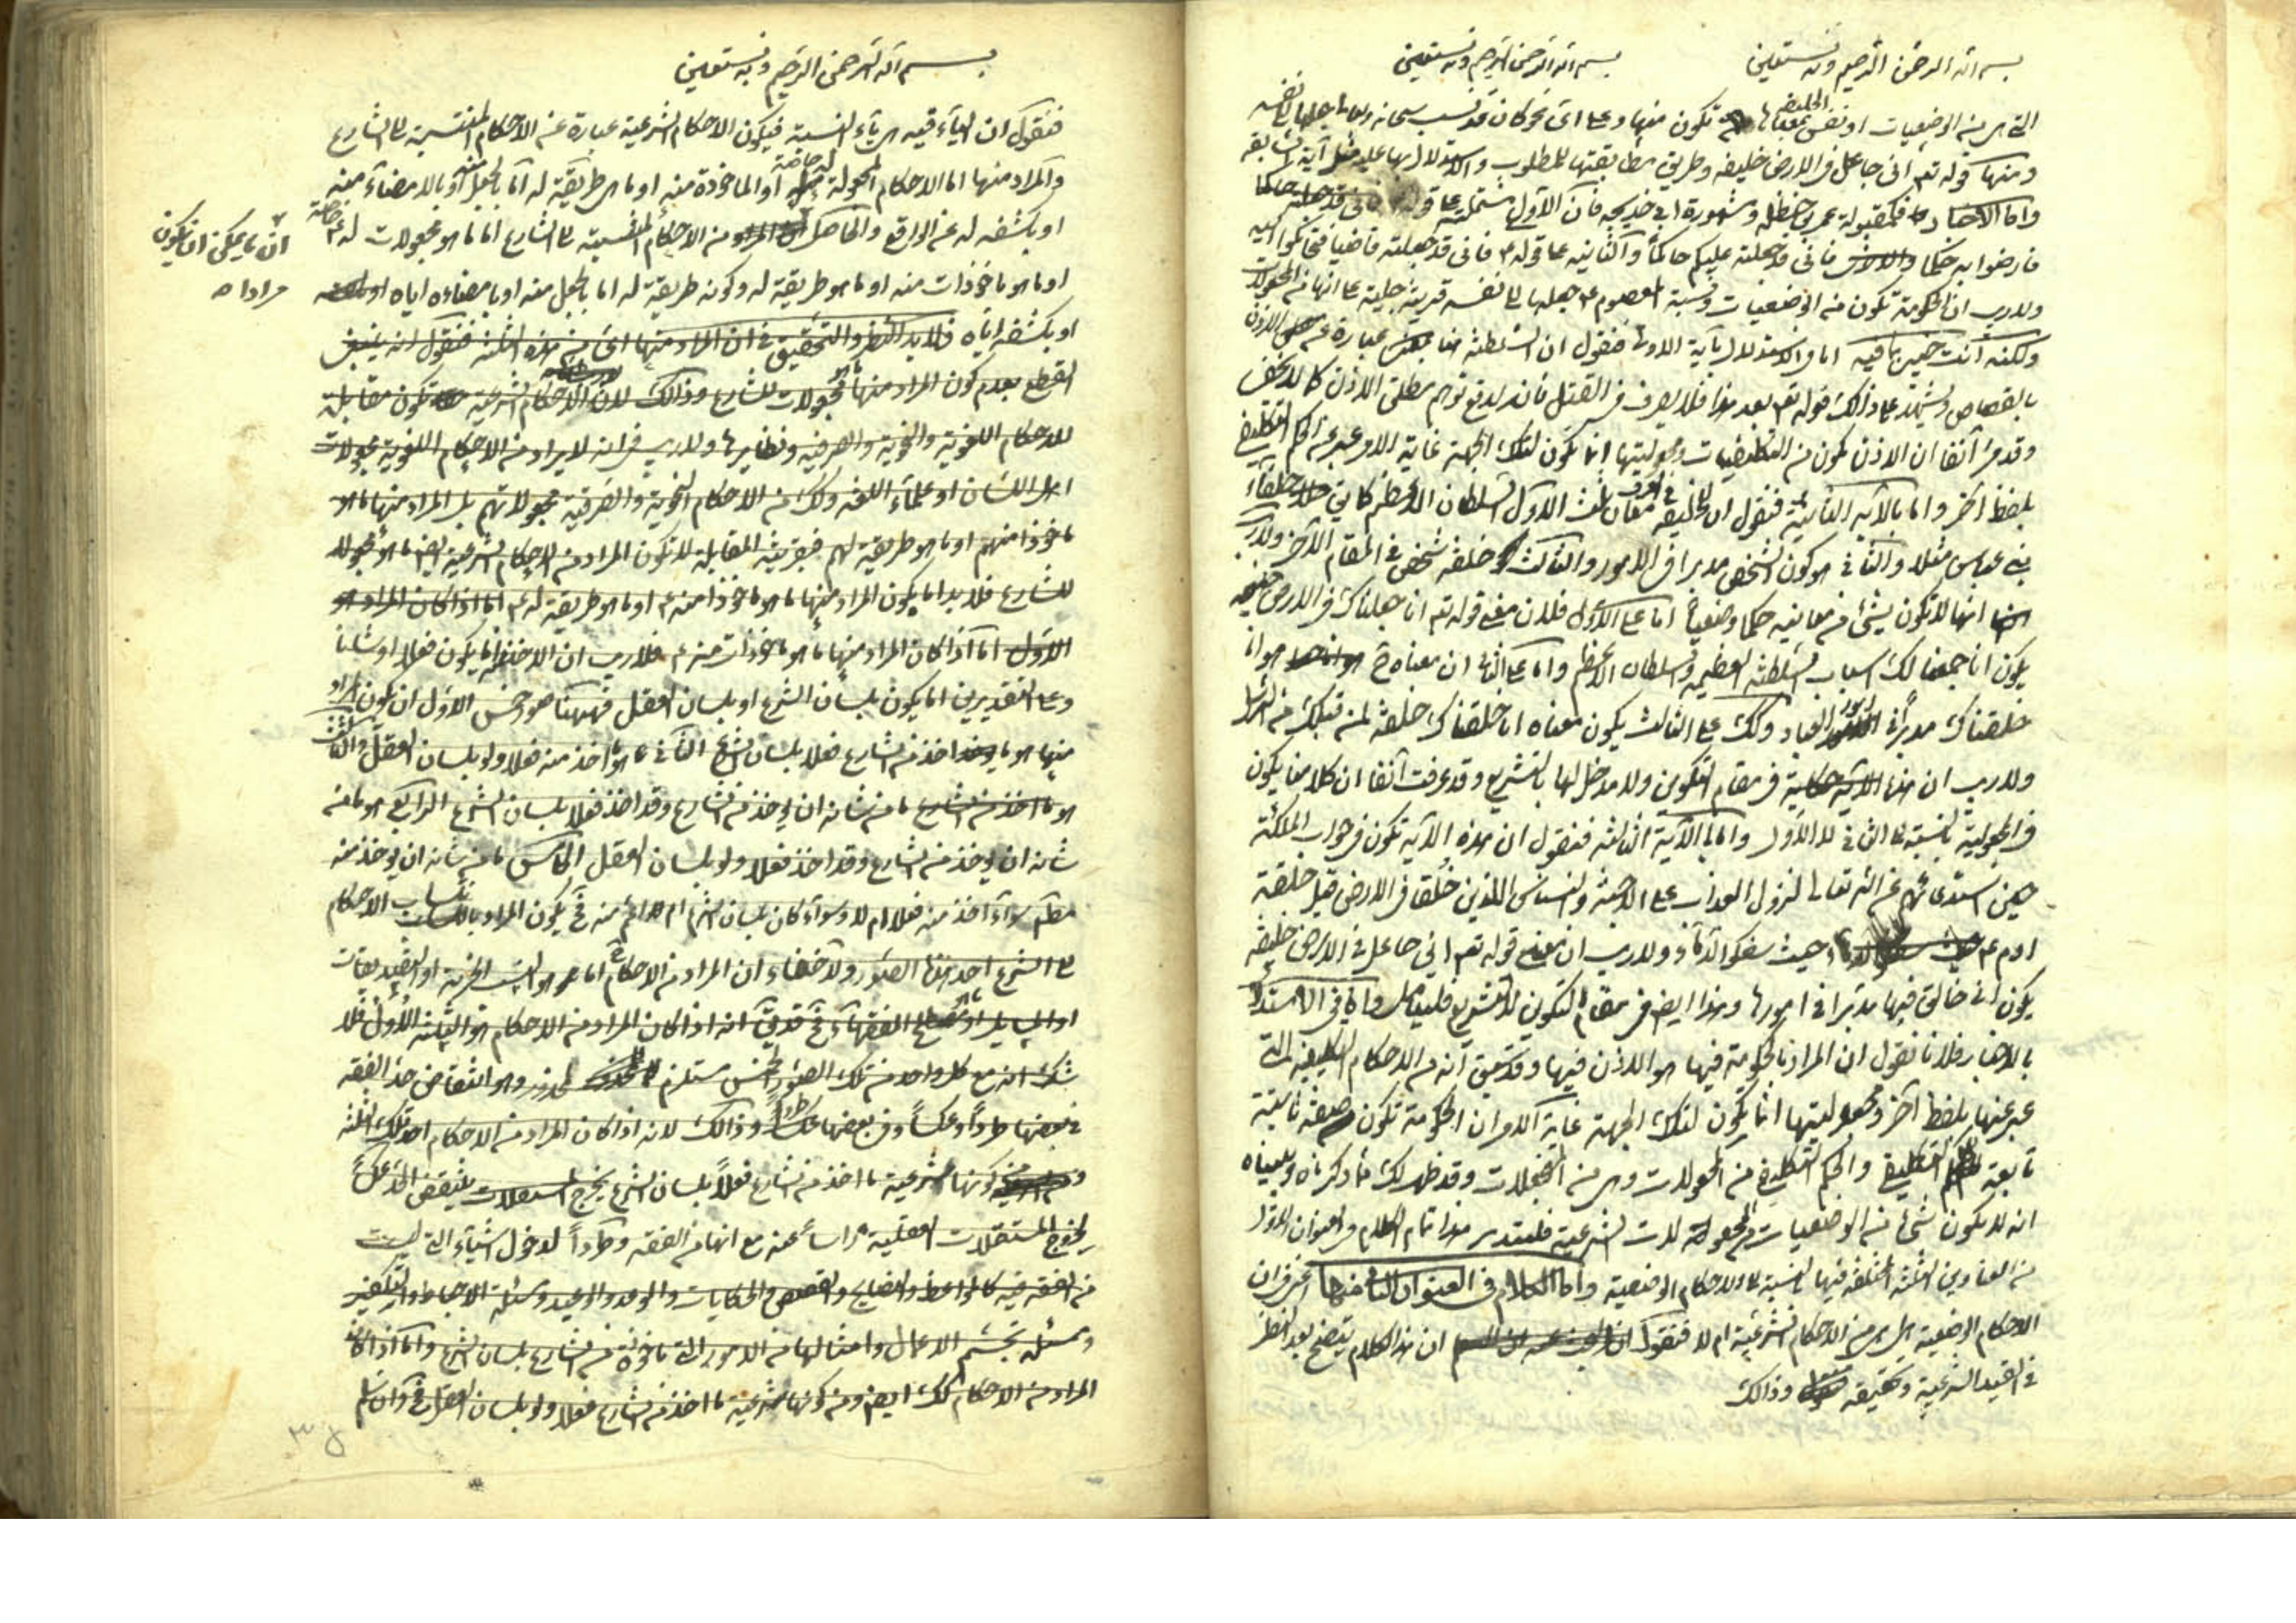 بسم الله الرحمن الرحيم وبه نستعين
بسم الله الرحمن الرحيم وبه نستعين
التي هي من الوضعيات او نفس معناها تكون منها وعلى اي نحو كان قد نسب سبحانه جعلها الى نفسه
الخليفة
ومنها قوله تع اني جاعل في الارض خليفة وطريق مطابقتها للمطلوب والاستدلال بها عليه مثل آية السابقة
واما الاخبار فكمقبولة عمر بن حنظلة ومشهورة ابي خديجة فان الاول مشتملة على قوله فاني قد جعلته حاكما
فارضوا به حكما فاني قد جعلته عليكم حاكما والثانية على قوله ع فاني قد جعلته قاضيا فتحاكموا اليه
ولا ريب ان الحكومة تكون من الوضعيات ونسبة المعصوم ع جعلها الى نفسه قرينة جلية على انها من المجعولات
ولكنك انت خبير بما فيه اما في الاستدلال بآية الاولى فنقول ان السلطنة هنا عبارة عن الاذن
بالقصاص ويشهد على ذلك قوله تع بعد هذا فلا يسرف في القتل فانه لدفع توهم مطلق الاذن كما لا يخفى
وقد مر آنفا ان الاذن تكون من التكليفيات ومجعوليتها انما تكون لتلك الجهة غاية الامر عبر عن الحكم التكليفي
بلفظ آخر واما بالآية الثانية فنقول ان للخليفة في العرف معان ثلث الاول السلطان الاعظم كما في خلفاء
بني عباس مثلا والثاني هو كون الشخص مدبرا في الامور والثالث خلفه شخص في المقام الآخر ولا ريب
انها لا تكون بشئ من معانيه حكما وضعيا اما على الاول فلان معنى قوله تع انا جعلناك في الارض خليفة
يكون انا جمعنا لك اسباب السلطنة العظيمة والسلطان الاعظم واما على الثاني ان معناه ح هو انا
خلقناك مدبرا في امور العباد وكك على الثالث يكون معناه انا خلقناك خلفة لمن قبلك من الرسل
ولا ريب ان هذا في مقام التكوين ولا مدخل لها بالتشريع وقد عرفت آنفا ان كلامنا يكون
في المجعولية بالنسبة الى الثاني لا الاول واما بالآية الثالثة فنقول ان هذه الآية تكون في جواب الملائكة
حين استدعائهم عن الله تعالى لنزول العذاب على الاجنة والنسناس اللذين خلقا في الارض قبل خلقة
ادم ع حيث سفكوا الدماء ولا ريب ان معنى قوله تع اني جاعل في الارض خليفة
يكون اني خالق فيها مدبرا في امورها وهذا ايض في مقام التكوين لا التشريع فليتامل واما في الاستدلال
بالاخبار فلانا نقول ان المراد بالحكومة فيها هو الاذن فيها وقد سبق انه من الاحكام التكليفية التي
عبر عنها بلفظ آخر ومجعوليتها انما يكون لتلك الجهة غاية الامر ان الحكومة تكون صفة ثانية
تابعة للحكم التكليفي والحكم التكليفي من المجعولات وقد ظهر لك مما ذكرناه وبيناه
انه لا يكون شئ من الوضعيات من المجعولات الشرعية فليتدبر هذا تمام الكلام في العنوان الاول
من العناوين الثلثة المختلفة فيها بالنسبة الى الاحكام الوضعية واما الكلام في العنوان الثاني منها اعني في ان
الاحكام الوضعية هل هي من الاحكام الشرعية ام لا فنقول ان هذا الكلام يتضح بعد النظر
في القيد الشرعية وتحقيقه وذلك
بسم الله الرحمن الرحيم وبه نستعين
فنقول ان الياء فيه هي ياء النسبة فيكون الاحكام الشرعية عبارة عن الاحكام المنتسبة الى الشارع
والمراد منها اما الاحكام المجعولة له خاصة او الماخوذة منه او ما هي طريقة له اما بالجعل منه او بالامضاء منه
او بكشفه له عن الواقع والحاصل من الاحكام المنتسبة الى الشارع اما ما هو مجعولات له ع خاصة
ان ما يمكن ان يكون
مرادا ه
او ما هو ماخوذات منه او ما هو طريقة له وكونه طريقة له اما بالجعل منه او بامضائه اياه
او بكشفه اياه فلا بد النظر والتحقيق في ان المراد منها اي من هذه الثلثة فنقول انه ينبغي
القطع بعدم كون المراد منها مجعولات للشارع وذلك لان الاحكام الشرعية تكون مقابلة
للاحكام اللغوية والنحوية والصرفية ونظايرها ولا ريب في انه لا يراد من الاحكام اللغوية مجعولات
اهل اللسان او علماء اللغة وكك من الاحكام النحوية والصرفية مجعولاتهم بل المراد منها ما هو
ماخوذا منهم او ما هو طريقة لهم فبقرينة المقابلة لا تكون المراد من الاحكام الشرعية ايض ما هو مجعولا
للشارع فلا بد اما يكون المراد منها ما هو ماخوذا منه ع او ما هو طريقة له ع اما اذا كان المراد هو
الاول اما اذا كان المراد منها ما هو ماخوذات منه ع فلا ريب ان الاخذ اما يكون فعلا او شانا
وعلى التقديرين اما يكون بلسان الشرع او بلسان العقل فههنا صور خمس الاول ان يكون المراد
منها هو ما اخذ من الشارع فعلا بلسان الشرع الثاني ما هو اخذ منه فعلا ولو بلسان العقل والثالث
هو ما من شانه ان يؤخذ من الشارع وقد اخذ فعلا بلسان الشرع الرابع هو ما من
شانه ان يؤخذ من الشارع وقد اخذ فعلا ولو بلسان العقل الخامس ما من شانه ان يؤخذ منه
مطلقا سواء اخذ منه فعلا ام لا وسواء كان بلسان الشرع ام الاعم منه فح يكون المراد بانتساب الاحكام
الى الشرع احد هذه الصور ولا خفاء ان المراد من الاحكام اما هو النسب الخبرية او التصديقات
او المسايل او ما هو مصطلح الفقهاء فح قد يق انه اذا كان المراد من الاحكام هو الثلثة الاول فلا
شك انه مع كل واحد من تلك الصور الخمس مستلزم لمحذور وهو انتقاض حد الفقه
في بعضها طردا وعكسا وفي بعضها طردا وذلك لانه اذا كان المراد من الاحكام احد تلك الثلثة
ومن كونها شرعية ما اخذ من الشارع فعلا بلسان الشرع ينتقض الحد عكسا
لخروج المستقلات العقلية راسا عنه مع انها من الفقه وطردا لدخول اشياء التي ليست
من الفقه فيه كالمواعظ والنصايح والقصص والحكايات والوعد والوعيد ومسئلة الاحباط والتكفير
ومسئلة تجسم الاعمال وامثالها من الامور التي ماخوذة من الشارع بلسان الشرع واما اذا كان
المراد من الاحكام كك ايض ومن كونها شرعية ما اخذ من الشارع فعلا ولو بلسان العقل فح وان سلم